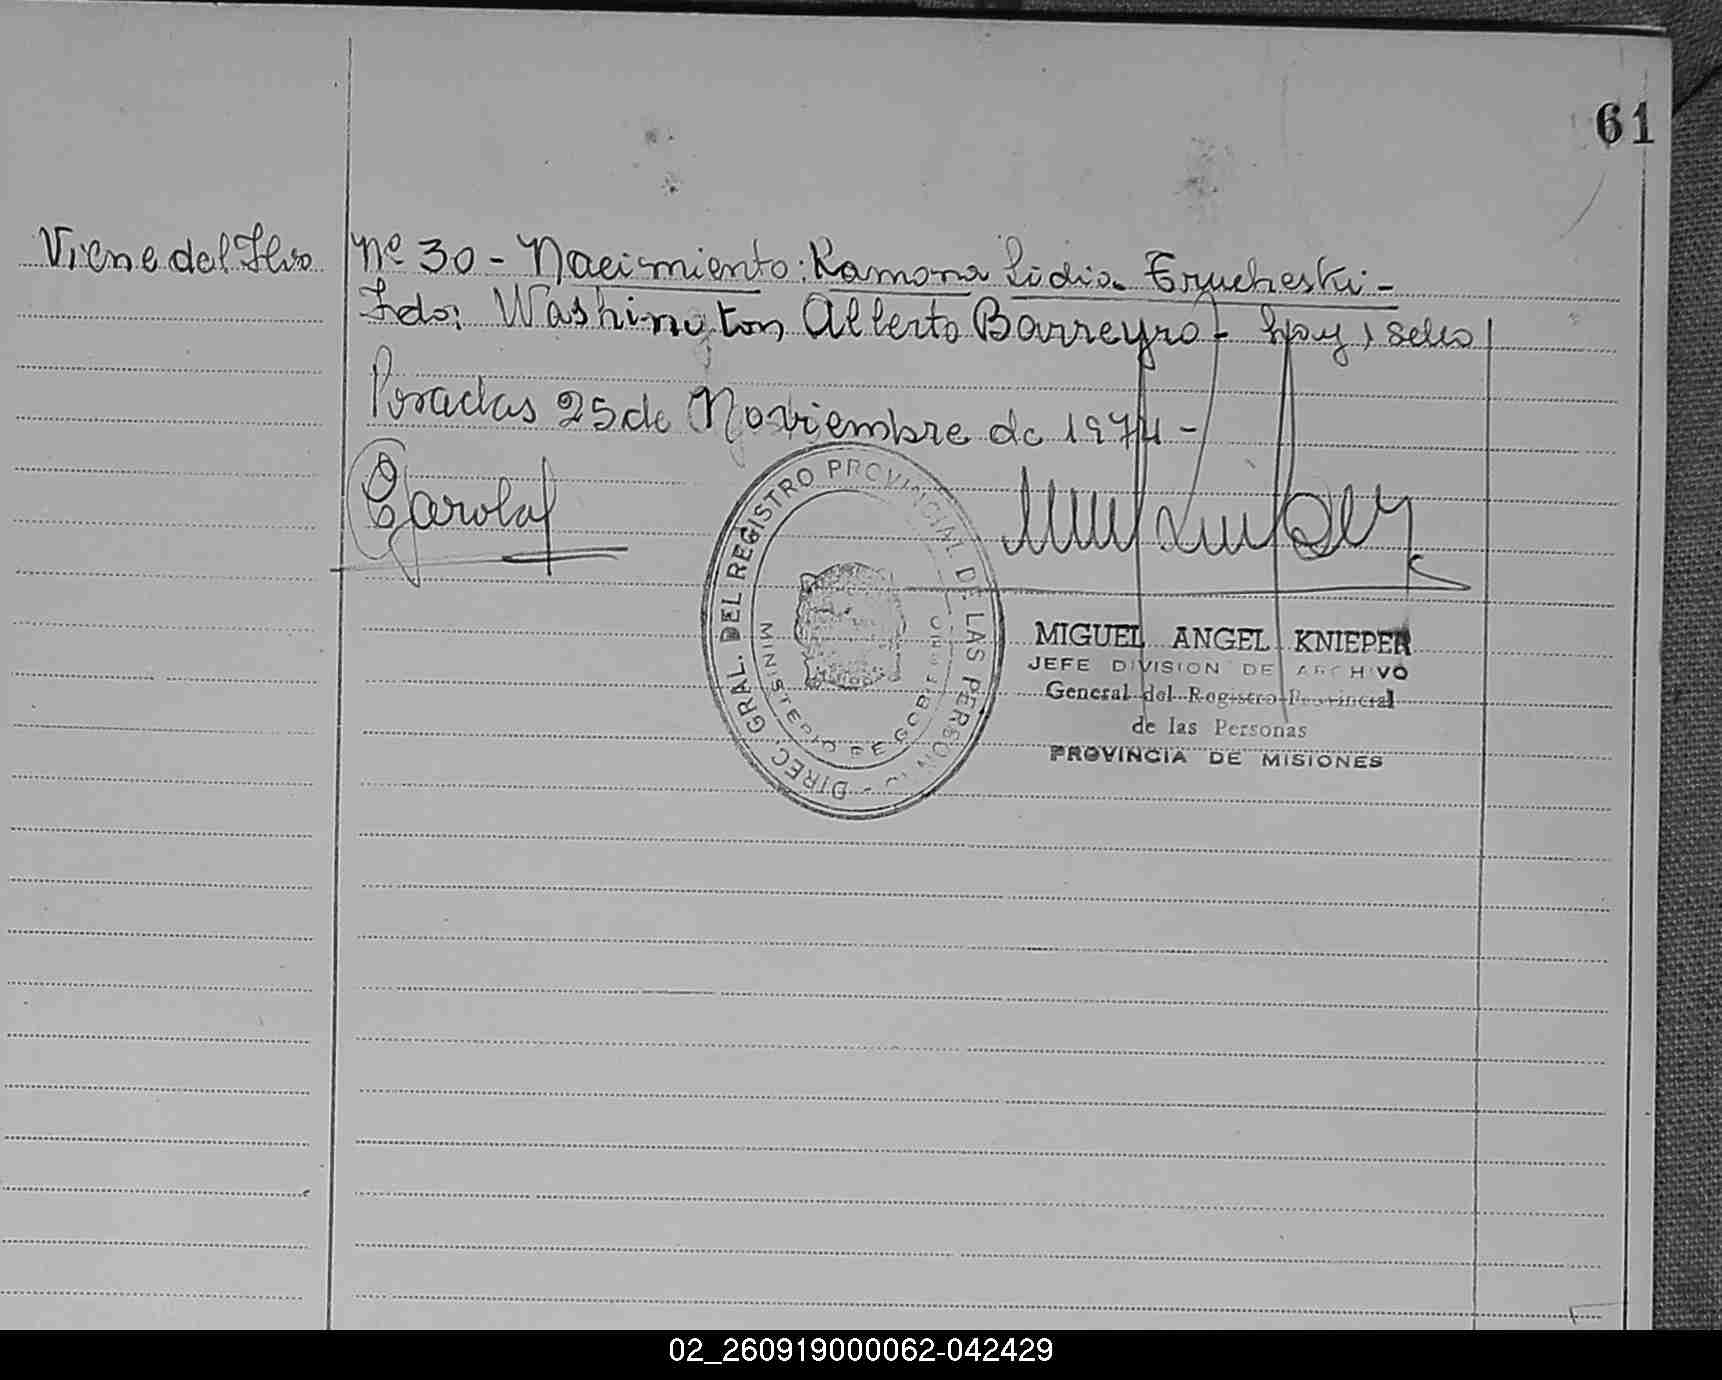 61
Viene del Flio Nº 30 - Nacimiento: Ramona Lidia Erucheski -
Fdo: Washington Alberto Barreyro - hay 1 sello
Posadas 25 de Noviembre de 1974 -
DIREC. GRAL. DEL REGISTRO PROVINCIAL DE LAS PERSONAS
MINISTERIO DE GOB.
MIGUEL ANGEL KNIEPER
JEFE DIVISION DE ARCHIVO
General del Registro Provincial
de las Personas
PROVINCIA DE MISIONES
02_260919000062-042429